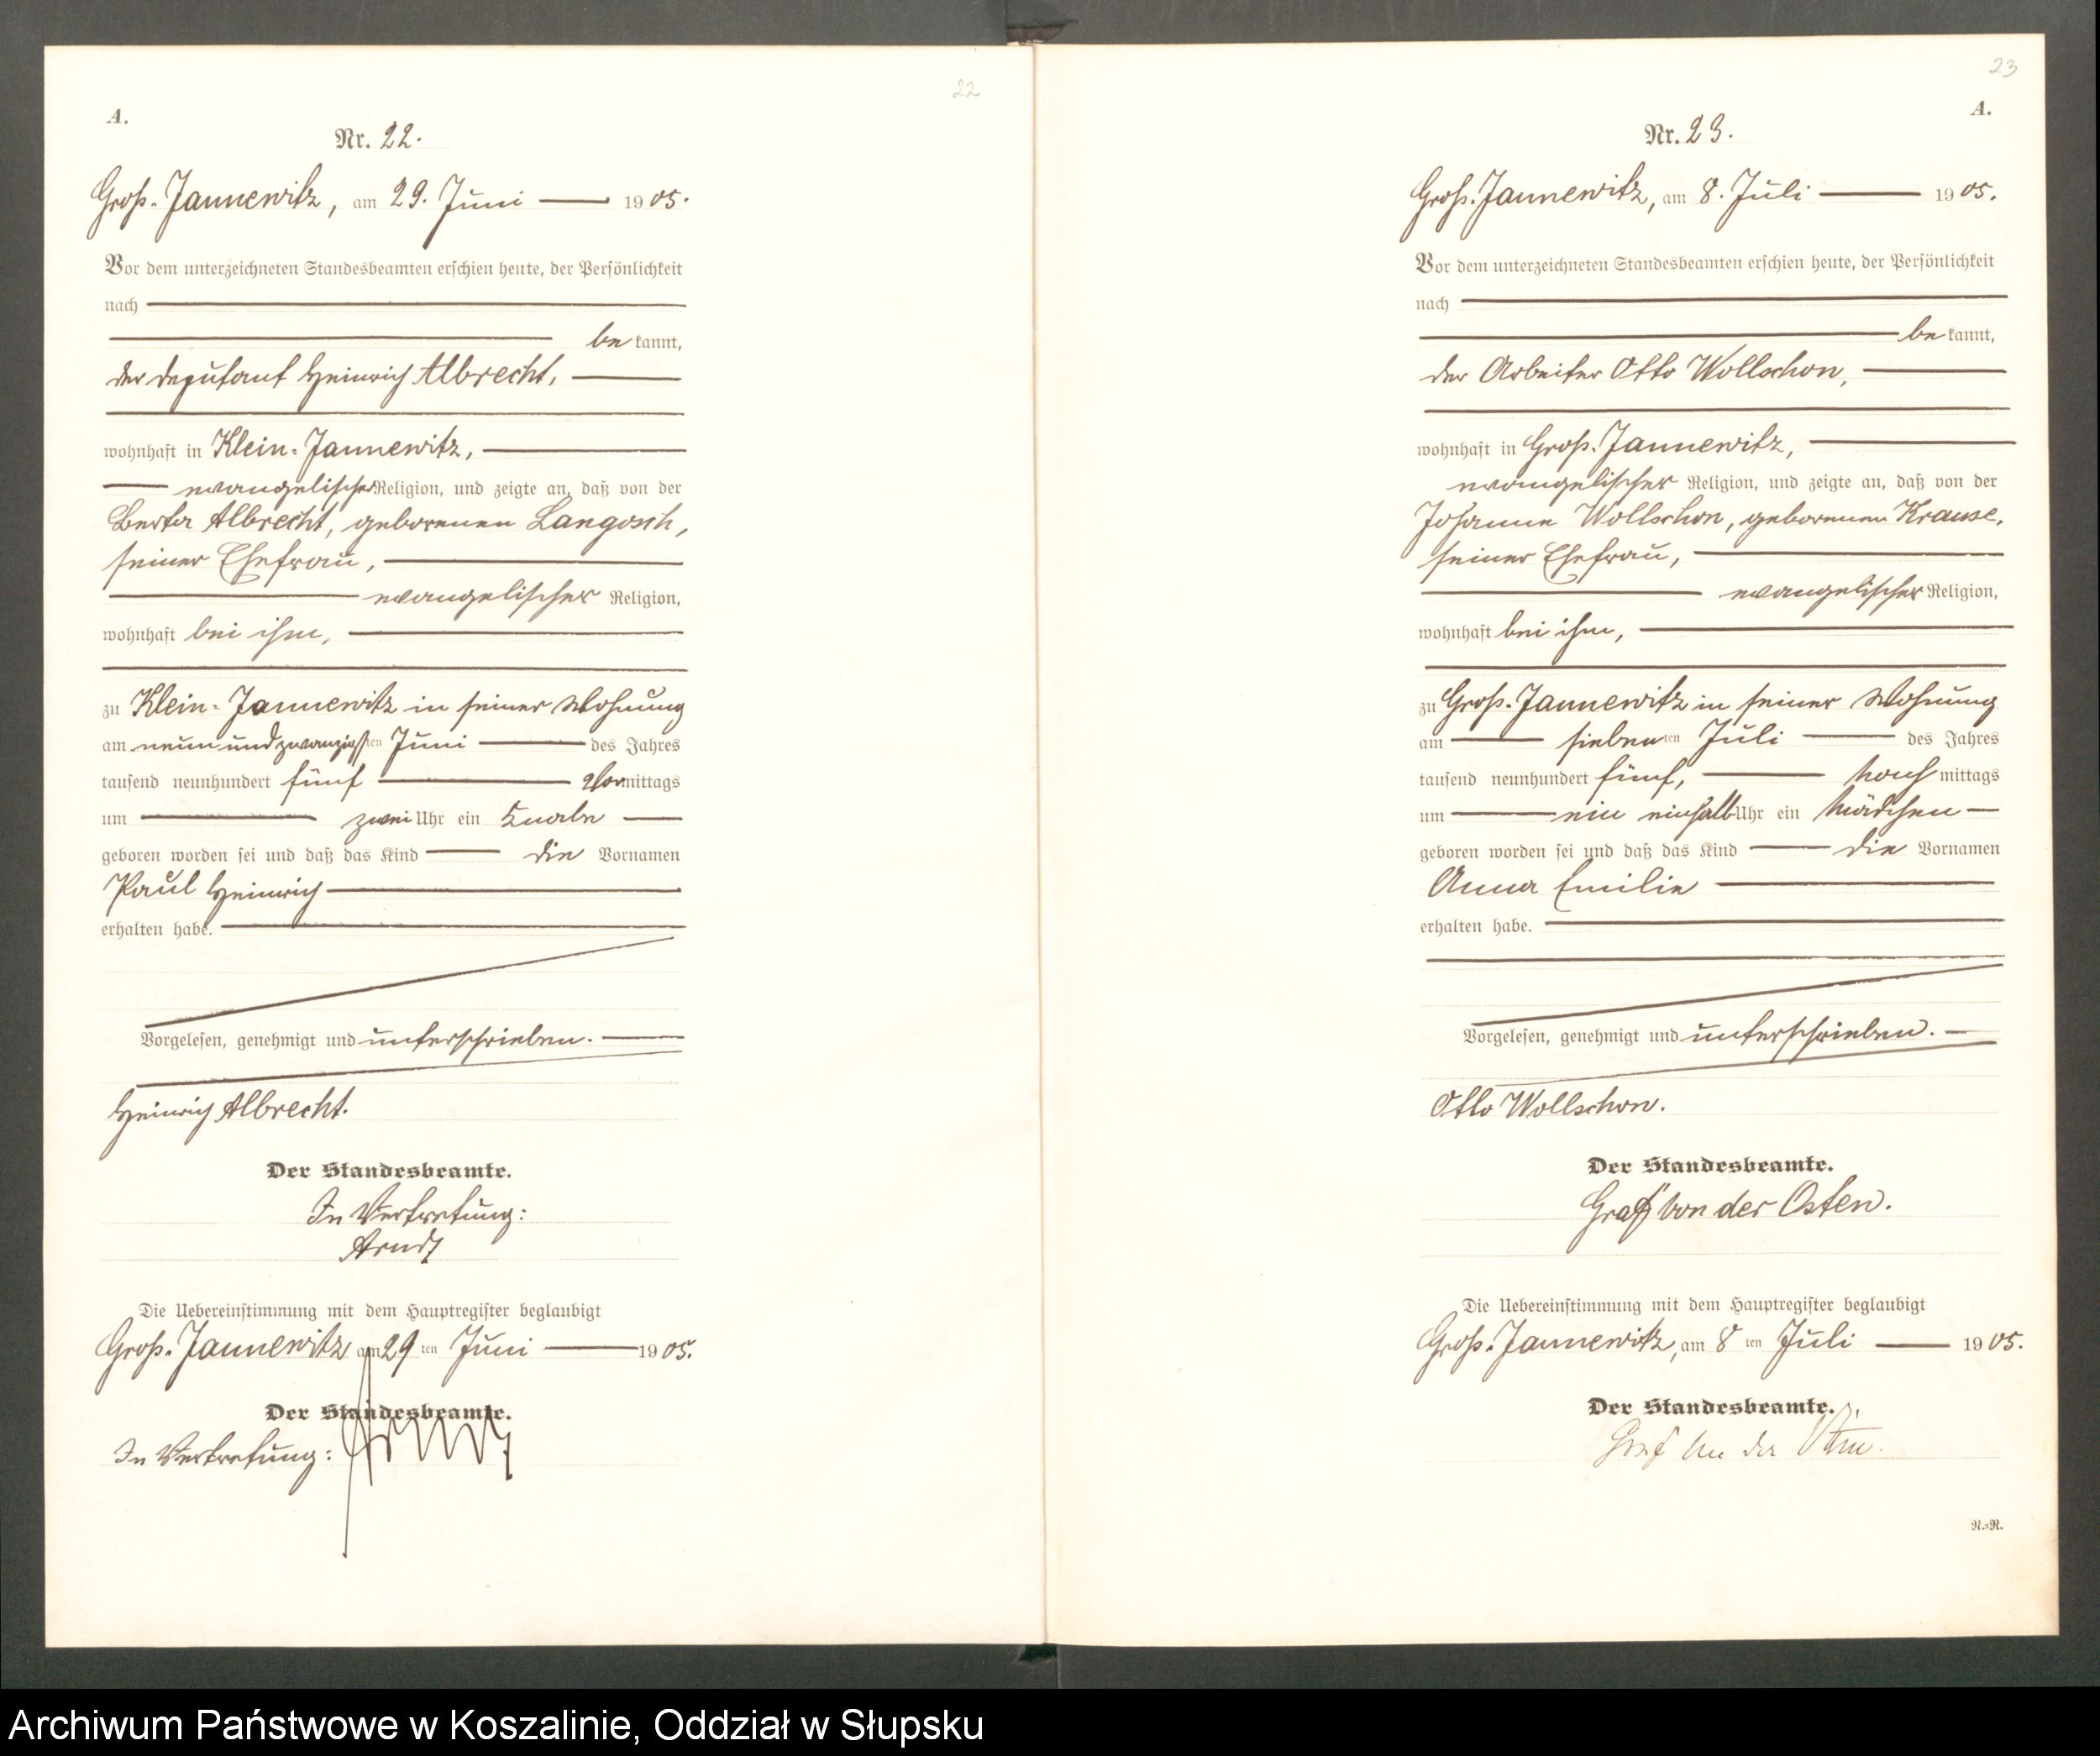 22
A.
Nr. 22.
Groß-Jannewitz, am 29. Juni 1905.
Vor dem unterzeichneten Standesbeamten erschien heute, der Persönlichkeit
nach
bekannt,
der Deputant Heinrich Albrecht,
wohnhaft in Klein-Jannewitz,
evangelischer Religion, und zeigte an, daß von der
Berta Albrecht, geborenen Langosch,
seiner Ehefrau,
evangelischer Religion,
wohnhaft bei ihm,
zu Klein-Jannewitz in seiner Wohnung
am neun und zwanzigsten Juni des Jahres
tausend neunhundert fünf Vormittags
um zwei Uhr ein Knabe
geboren worden sei und daß das Kind die Vornamen
Paul Heinrich
erhalten habe.
Vorgelesen, genehmigt und unterschrieben.
Heinrich Albrecht.
Der Standesbeamte.
In Vertretung:
Arndt
Die Uebereinstimmung mit dem Hauptregister beglaubigt
Groß-Jannewitz am 29ten Juni 1905.
Der Standesbeamte.
In Vertretung: Arndt
23
A.
Nr. 23.
Groß-Jannewitz, am 8. Juli 1905.
Vor dem unterzeichneten Standesbeamten erschien heute, der Persönlichkeit
nach
bekannt,
der Arbeiter Otto Wollschon,
wohnhaft in Groß-Jannewitz,
evangelischer Religion, und zeigte an, daß von der
Johanne Wollschon, geborenen Krause,
seiner Ehefrau,
evangelischer Religion,
wohnhaft bei ihm,
zu Groß-Jannewitz in seiner Wohnung
am siebenten Juli des Jahres
tausend neunhundert fünf, Nachmittags
um ein einhalb Uhr ein Mädchen
geboren worden sei und daß das Kind die Vornamen
Anna Emilie
erhalten habe.
Vorgelesen, genehmigt und unterschrieben.
Otto Wollschon.
Der Standesbeamte.
Graf von der Osten.
Die Uebereinstimmung mit dem Hauptregister beglaubigt
Groß-Jannewitz, am 8ten Juli 1905.
Der Standesbeamte.
Graf von der Osten.
R.=R.
Archiwum Państwowe w Koszalinie, Oddział w Słupsku